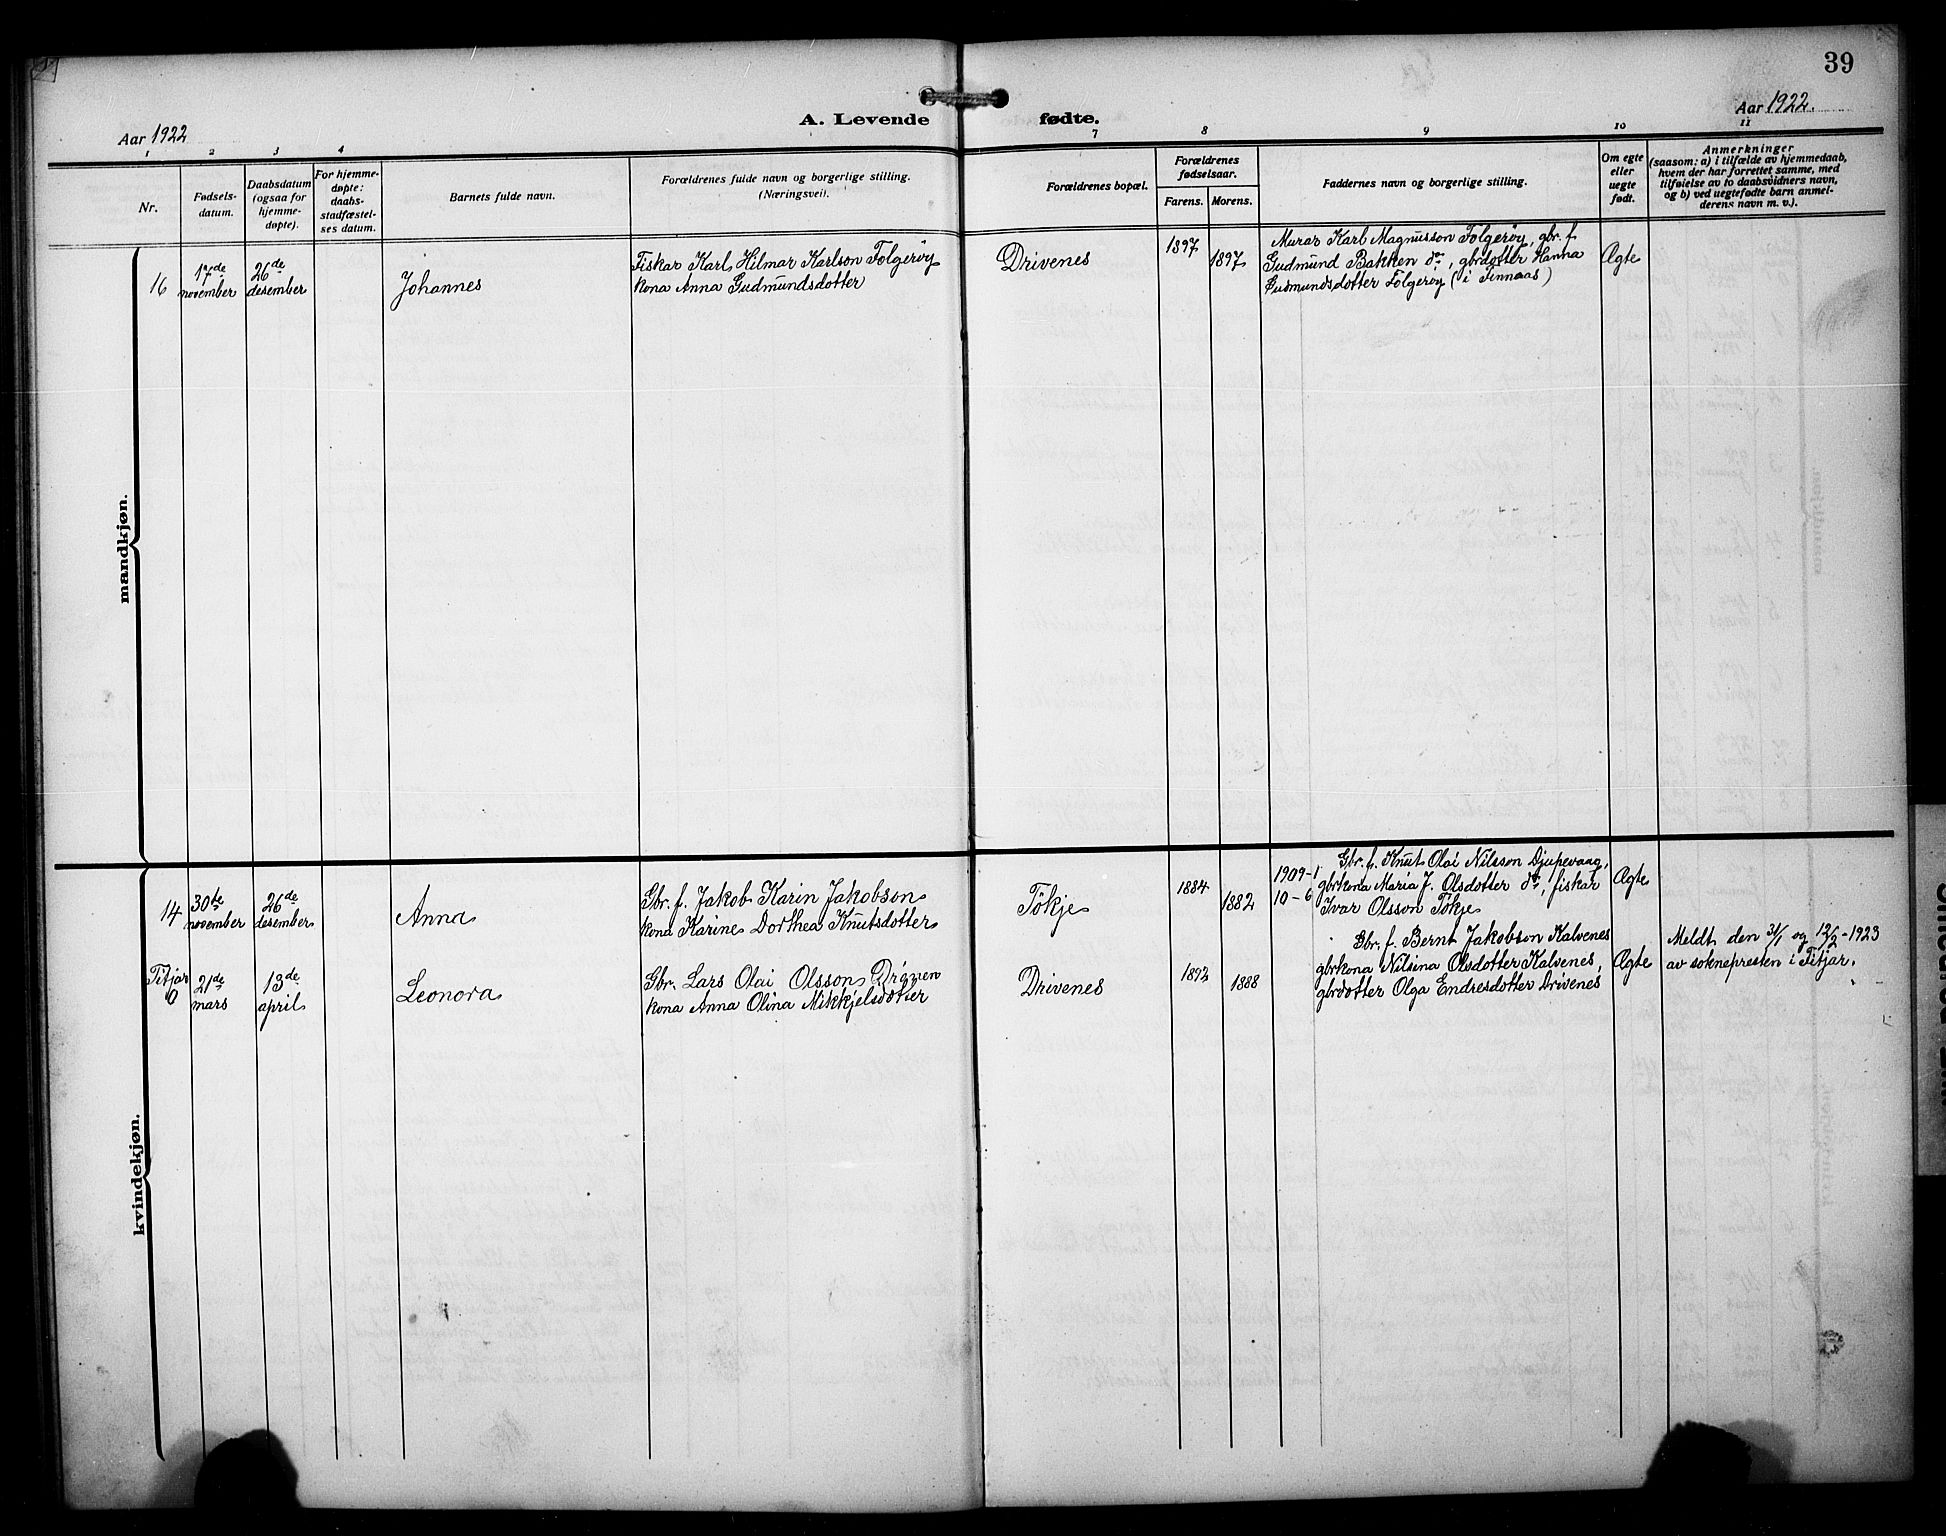 39
A. Levende fødte.
Aar 1922
Aar 1922.
1 2 3 4 7 8 9 10 11
Nr.
Fødsels-
datum.
Daabsdatum
(ogsaa for
hjemme-
døpte).
For hjemme-
døpte:
daabs-
stadfæstel-
ses datum.
Barnets fulde navn.
Forældrenes fulde navn og borgerlige stilling.
(Næringsvei).
Forældrenes bopæl.
Forældrenes
fødselsaar.
Farens. Morens.
Faddernes navn og borgerlige stilling.
Om egte
eller
uegte
født.
Anmerkninger
(saasom: a) i tilfælde av hjemmedaab,
hvem der har forrettet samme, med
tilføielse av to daabsvidners navn,
og b) ved uegtefødte barn anmel-
derens navn m. v.).
mandkjøn.
16
17de
november
26de
desember
Johannes
Fiskar Karl Hilmar Karlson Folgerøy
kona Anna Gudmundsdotter
Drivenes
1897
1897
Murar Karl Magnusson Folgerøy, gbr. f.
Gudmund Bakken do, gbrdotter Hanna
Gudmundsdotter Folgerøy (i Finnaas)
Ægte
kvindekjøn.
14
30te
november
26de
desember
Anna
Gbr. f. Jakob Karin Jakobson
kona Karine Dorthea Knutsdotter
Tökje
1884
1882
1909-1
10-6
Gbr. f. Knut Olai Nilsson Djupevaag,
gbrkona Maria J. Olsdotter do, fiskar
Ivar Olsson Tökje
Ægte
Fitjar
6
21de
mars
13de
april
Leonora
Gbr. Lars Olai Olsson
kona Anna Olina Mikkjelsdotter
Drivenes
1892
1888
Gbr. f. Bernt Jakobson Kalvenes
gbrkona Nilsina Olsdotter Kalvenes,
gbrdotter Olga Endresdotter Drivenes
Ægte
Meldt den 31/1 og 12/2-1923
av soknepresten i Fitjar.